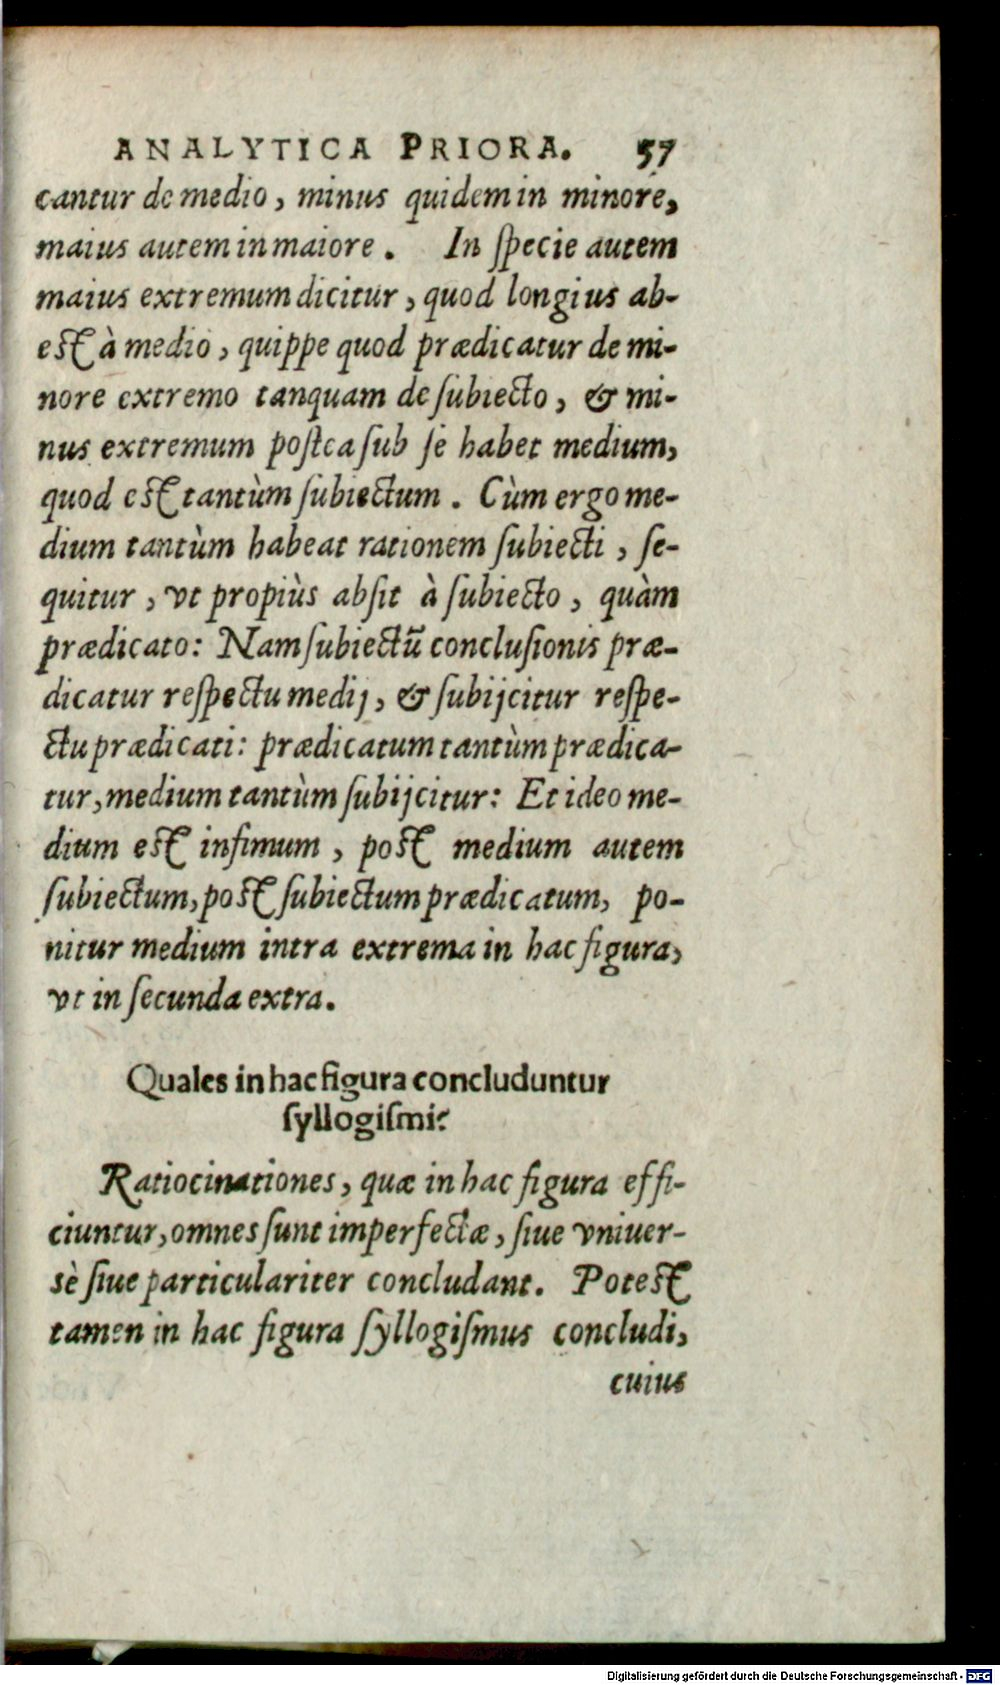 ANALYTICA PRIORA. 57
cantur de medio, minus quidem in minore,
maius autem in maiore. In ſpecie autem
maius extremum dicitur, quod longius ab-
eſt à medio, quippe quod prædicatur de mi-
nore extremo tanquam de ſubiecto, & mi-
nus extremum poſtea ſub ſe habet medium,
quod eſt tantùm ſubiectum. Cùm ergo me-
dium tantùm habeat rationem ſubiecti, ſe-
quitur, vt propiùs abſit à ſubiecto, quàm
prædicato: Nam ſubiectũ concluſionis præ-
dicatur reſpectu medij, & ſubijcitur reſpe-
ctu prædicati: prædicatum tantùm prædica-
tur, medium tantùm ſubijcitur: Et ideo me-
dium eſt infimum, poſt medium autem
ſubiectum, poſt ſubiectum prædicatum, po-
nitur medium intra extrema in hac figura,
vt in ſecunda extra.
Quales in hac figura concluduntur
ſyllogiſmi?
Ratiocinationes, quæ in hac figura effi-
ciuntur, omnes ſunt imperfectæ, ſiue vniuer-
sè ſiue particulariter concludant. Poteſt
tamen in hac figura ſyllogiſmus concludi,
cuius
Digitalisierung gefördert durch die Deutsche Forschungsgemeinschaft - DFG